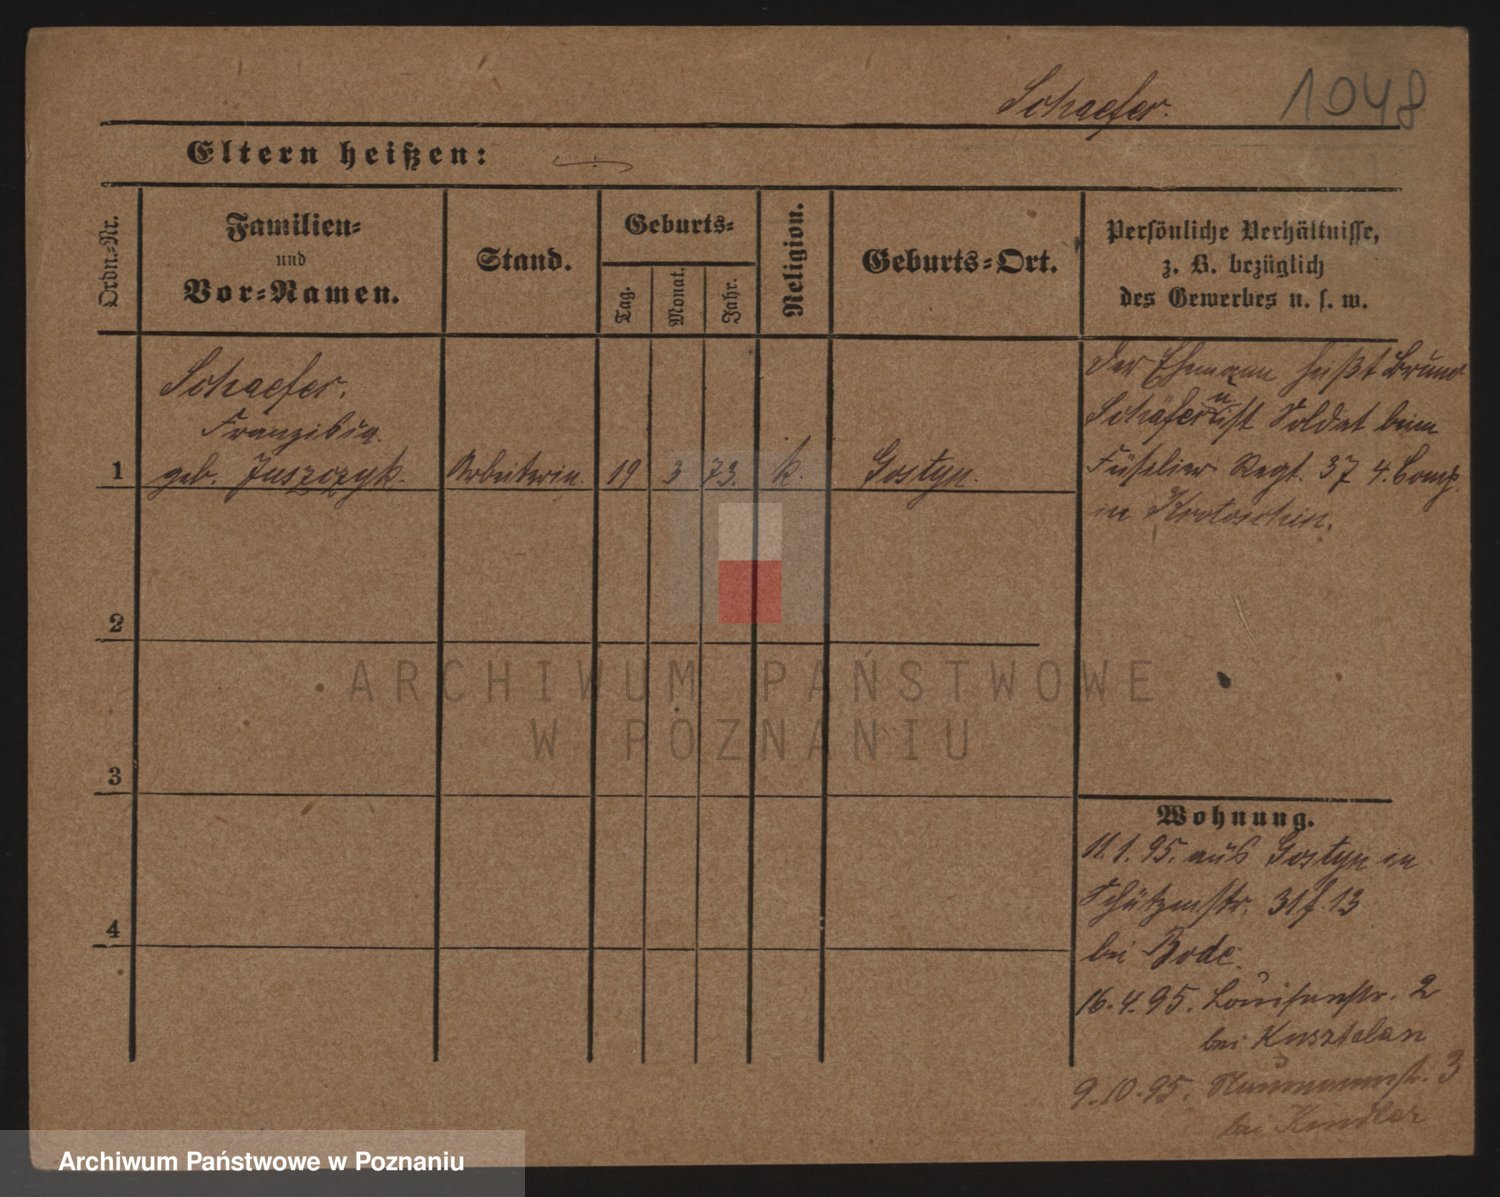 Schaefer.
1048
Eltern heißen:
Ordn.-Nr.
Familien-
und
Vor-Namen.
Stand.
Geburts-
Tag.
Monat.
Jahr.
Religion.
Geburts-Ort.
Persönliche Verhältnisse,
z. B. bezüglich
des Gewerbes u. s. w.
Schaefer.
Franziska.
1 geb. Juszczyk. Arbeiterin. 19 3 73. k. Gostyn.
der Ehemann heißt Bruno
Schäfer u ist Soldat beim
Füselier Regt. 37 4. Comp.
in Krotoschin.
2
3
4
Wohnung.
11.1.95. aus Gostyn in
Schützenstr. 31 f. 13
bei Bode.
16.4.95. Louisenstr. 2
bei Kusztelan
9.10.95. Naumannstr. 3
bei Kindler
ARCHIWUM PAŃSTWOWE
W POZNANIU
Archiwum Państwowe w Poznaniu